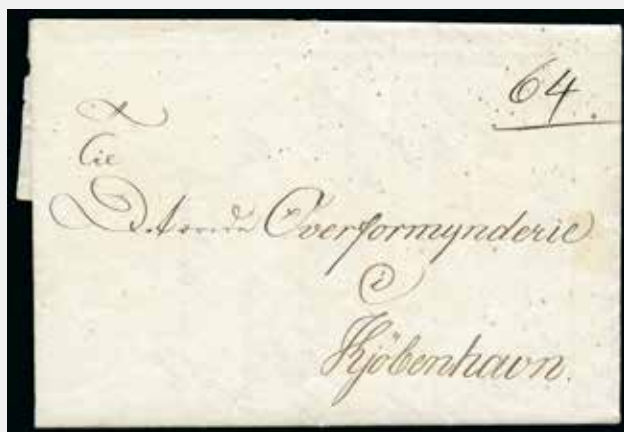 64
Overformynderie
i
Kjöbenhavn.